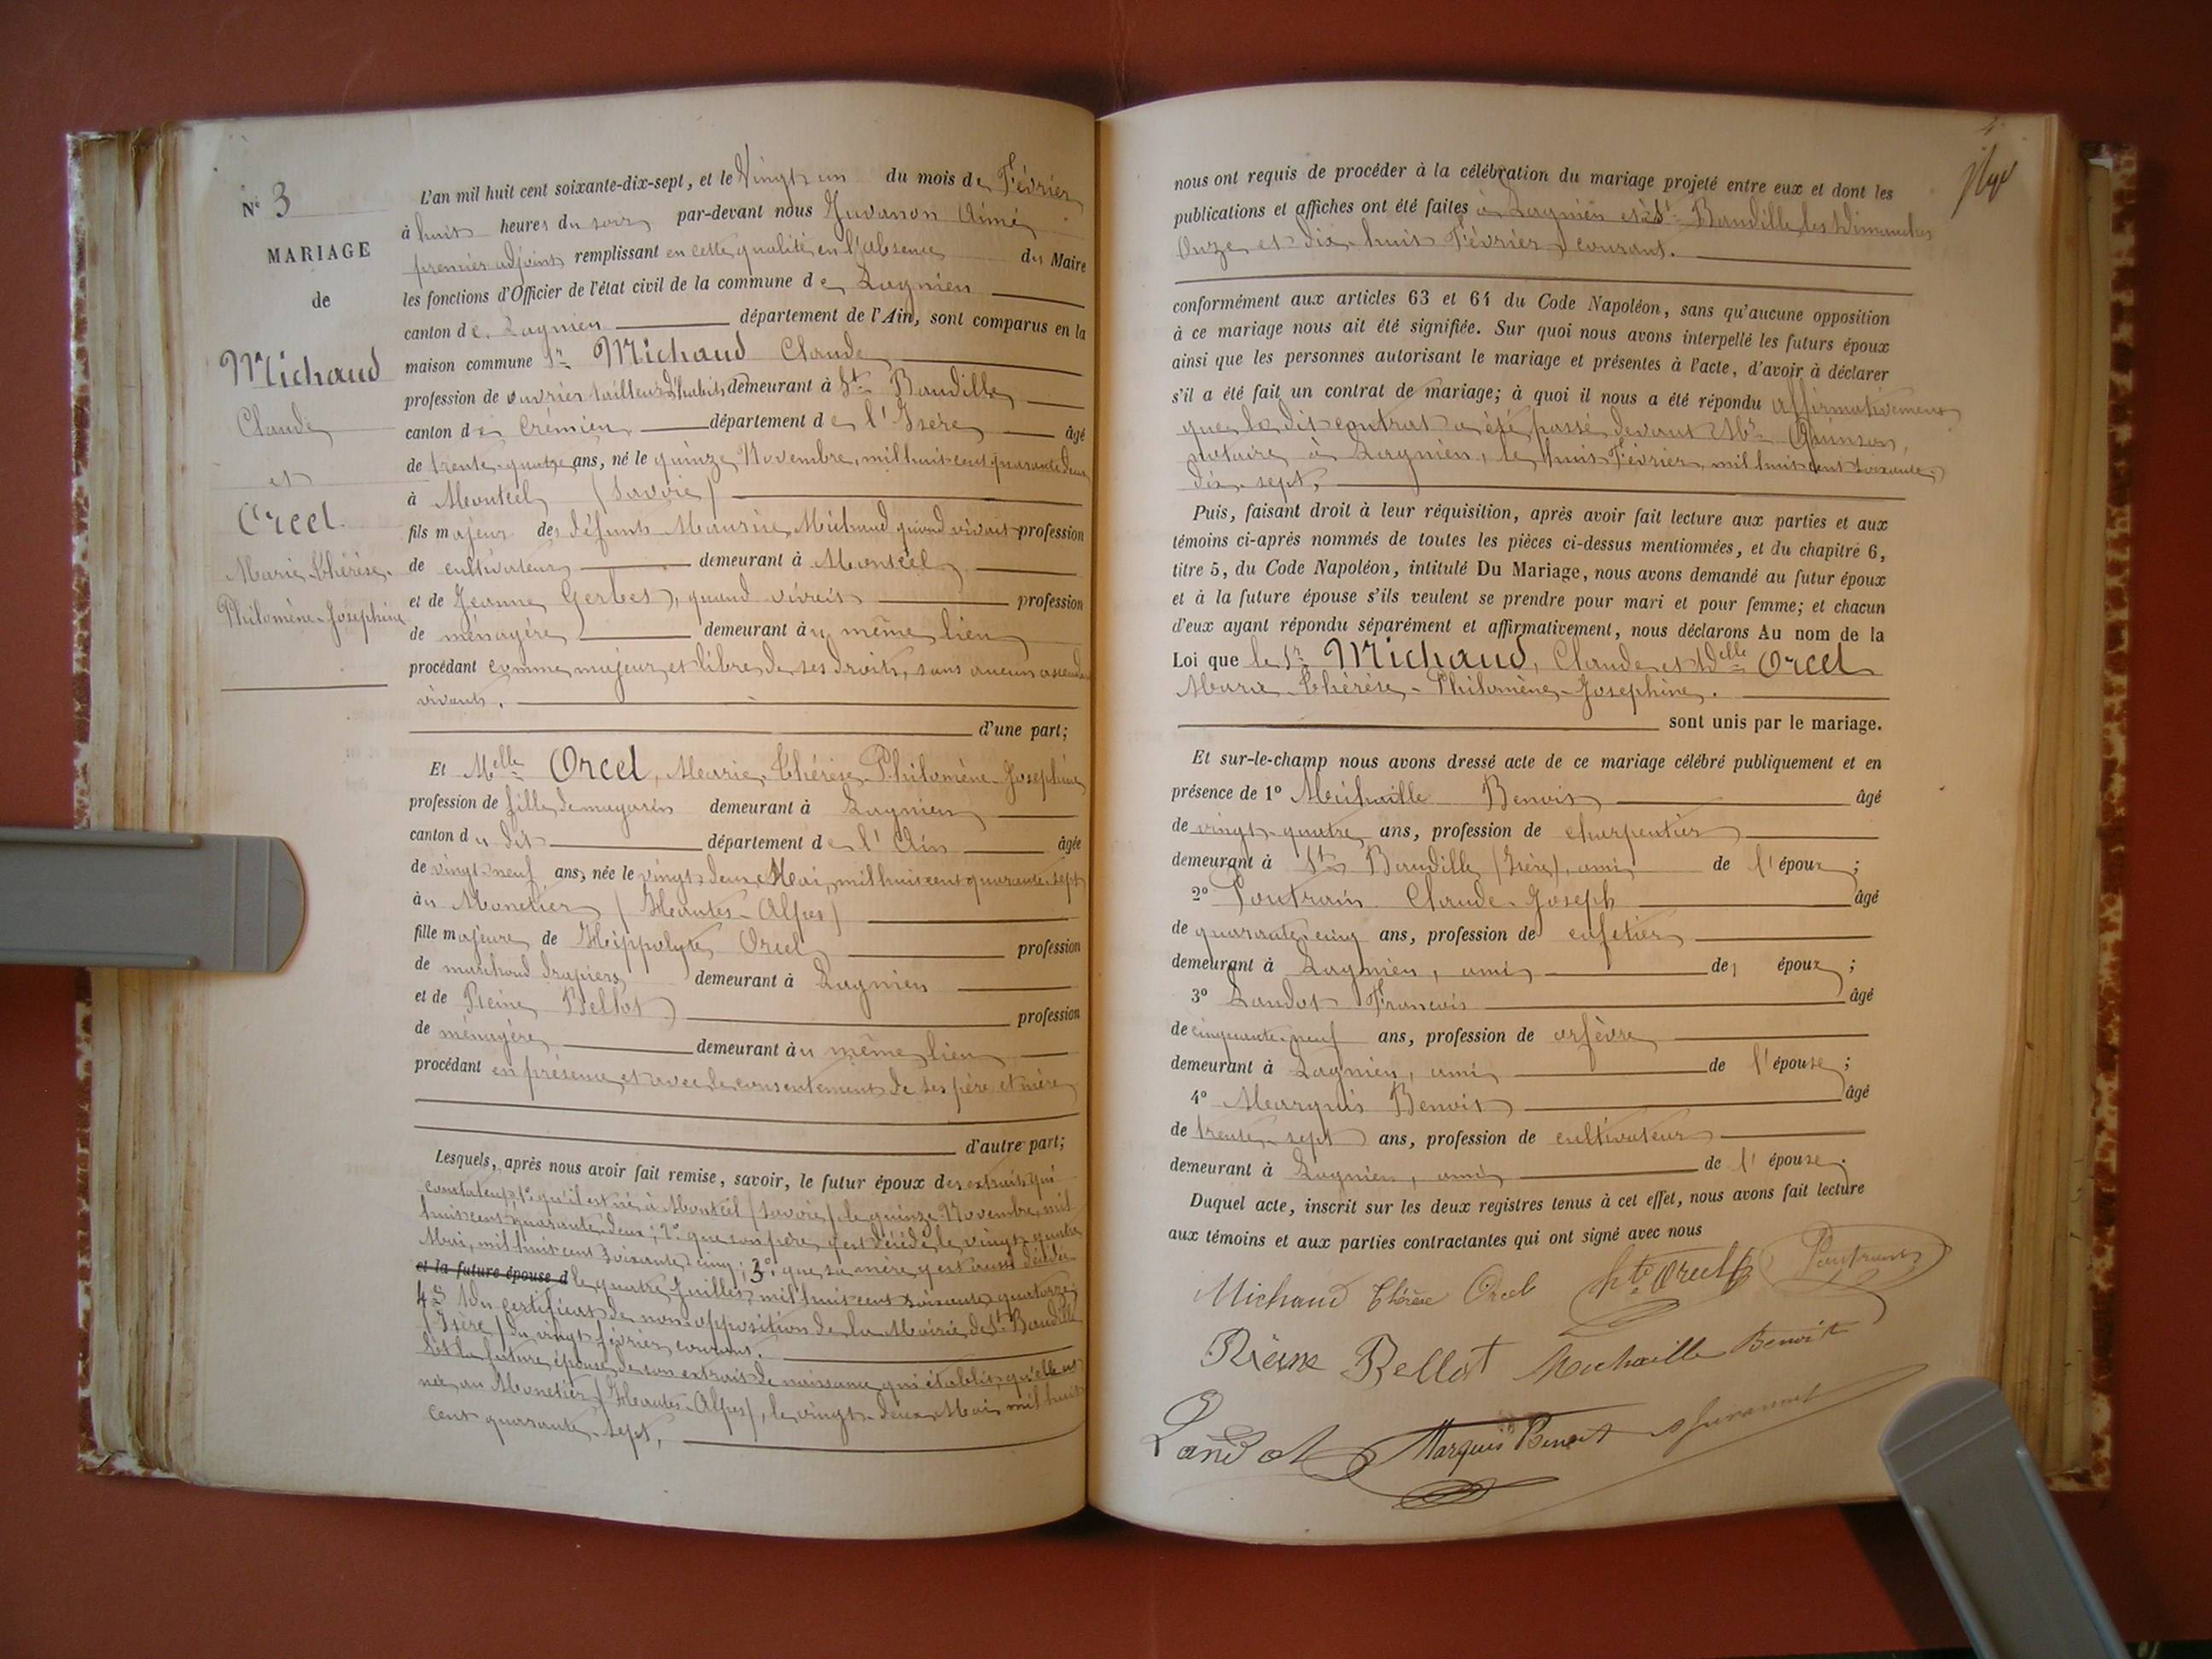 N° 3
MARIAGE
de
Michaud
Claude
et
Orcel.
Marie-Thérèse-
Philomène-Joséphine
L'an mil huit cent soixante-dix-sept, et le Vingt un du mois de Février
à huit heures du soir par-devant nous Juvanon Aimé
premier adjoint remplissant en cette qualité, en l'absence du Maire
les fonctions d'Officier de l'état civil de la commune de Lagnieu
canton de Lagnieu département de l'Ain, sont comparus en la
maison commune Sr Michaud Claude
profession de ouvrier tailleur d'habits demeurant à St Baudille
canton de Crémieu département de l'Isère âgé
de trente-quatre ans, né le quinze Novembre, mil huit cent quarante deux
à Montcel (Savoie)
fils majeur des défunts Maurice Michaud quand vivait profession
de cultivateur demeurant à Montcel
et de Jeanne Gerbet, quand vivait profession
de ménagère demeurant au même lieu
procédant comme majeur et libre de ses droits, sans aucun ascendant
vivant.
d'une part;
Et Melle Orcel, Marie, Thérèse Philomène-Joséphine
profession de fille de magasin demeurant à Lagnieu
canton du dit département de l'Ain âgée
de vingt-neuf ans, née le vingt-deux Mai, mil huit cent quarante-sept
au Monetier (Hautes-Alpes)
fille majeure de Hippolyte Orcel profession
de marchand drapier demeurant à Lagnieu
et de Reine Bellot profession
de ménagère demeurant au même lieu
procédant en présence et avec le consentement de ses père et mère
d'autre part;
Lesquels, après nous avoir fait remise, savoir, le futur époux des extraits qui
constatent 1° qu'il est né à Montcel (Savoie) le quinze Novembre mil
huit cent quarante deux; 2° que son père y est décédé le vingt-quatre
Mai, mil huit cent soixante cinq; 3° que sa mère y est aussi décédée
et la future épouse d le quatre Juillet, mil huit cent soixante quatorze;
4° Du certificat de non-opposition de la Mairie de St Baudille
(Isère) du vingt février courant.
Et la future épouse de son extrait de naissance qui établit qu'elle est
née au Monetier (Hautes-Alpes), le vingt-deux Mai mil huit
cent quarante-sept,
nous ont requis de procéder à la célébration du mariage projeté entre eux et dont les
publications et affiches ont été faites à Lagnieu et à St Baudille, les Dimanches
Onze et dix-huit Février courant.
conformément aux articles 63 et 64 du Code Napoléon, sans qu'aucune opposition
à ce mariage nous ait été signifiée. Sur quoi nous avons interpellé les futurs époux
ainsi que les personnes autorisant le mariage et présentes à l'acte, d'avoir à déclarer
s'il a été fait un contrat de mariage; à quoi il nous a été répondu affirmativement
que le dit contrat a été passé devant Me Quinson,
notaire à Lagnieu, le huit Février, mil huit cent soixante-
dix-sept,
Puis, faisant droit à leur réquisition, après avoir fait lecture aux parties et aux
témoins ci-après nommés de toutes les pièces ci-dessus mentionnées, et du chapitre 6,
titre 5, du Code Napoléon, intitulé Du Mariage, nous avons demandé au futur époux
et à la future épouse s'ils veulent se prendre pour mari et pour femme; et chacun
d'eux ayant répondu séparément et affirmativement, nous déclarons Au nom de la
Loi que le Sr Michaud, Claude et Delle Orcel
Marie-Thérèse-Philomène-Joséphine.
sont unis par le mariage.
Et sur-le-champ nous avons dressé acte de ce mariage célébré publiquement et en
présence de 1° Michaille Benoit âgé
de vingt-quatre ans, profession de charpentier
demeurant à St Baudille (Isère), ami de l'époux;
2° Poutrain Claude-Joseph âgé
de quarante-cinq ans, profession de cafetier
demeurant à Lagnieu, ami de l'époux;
3° Landot François âgé
de cinquante-neuf ans, profession de orfèvre
demeurant à Lagnieu, ami de l'épouse;
4° Marquis Benoit âgé
de trente-sept ans, profession de cultivateur
demeurant à Lagnieu, ami de l'épouse.
Duquel acte, inscrit sur les deux registres tenus à cet effet, nous avons fait lecture
aux témoins et aux parties contractantes qui ont signé avec nous
Michaud Thérèse Orcel Hte Orcel Poutrain
Reine Bellot Michaille Benoit
Landot Marquis Benoit A Juvanon